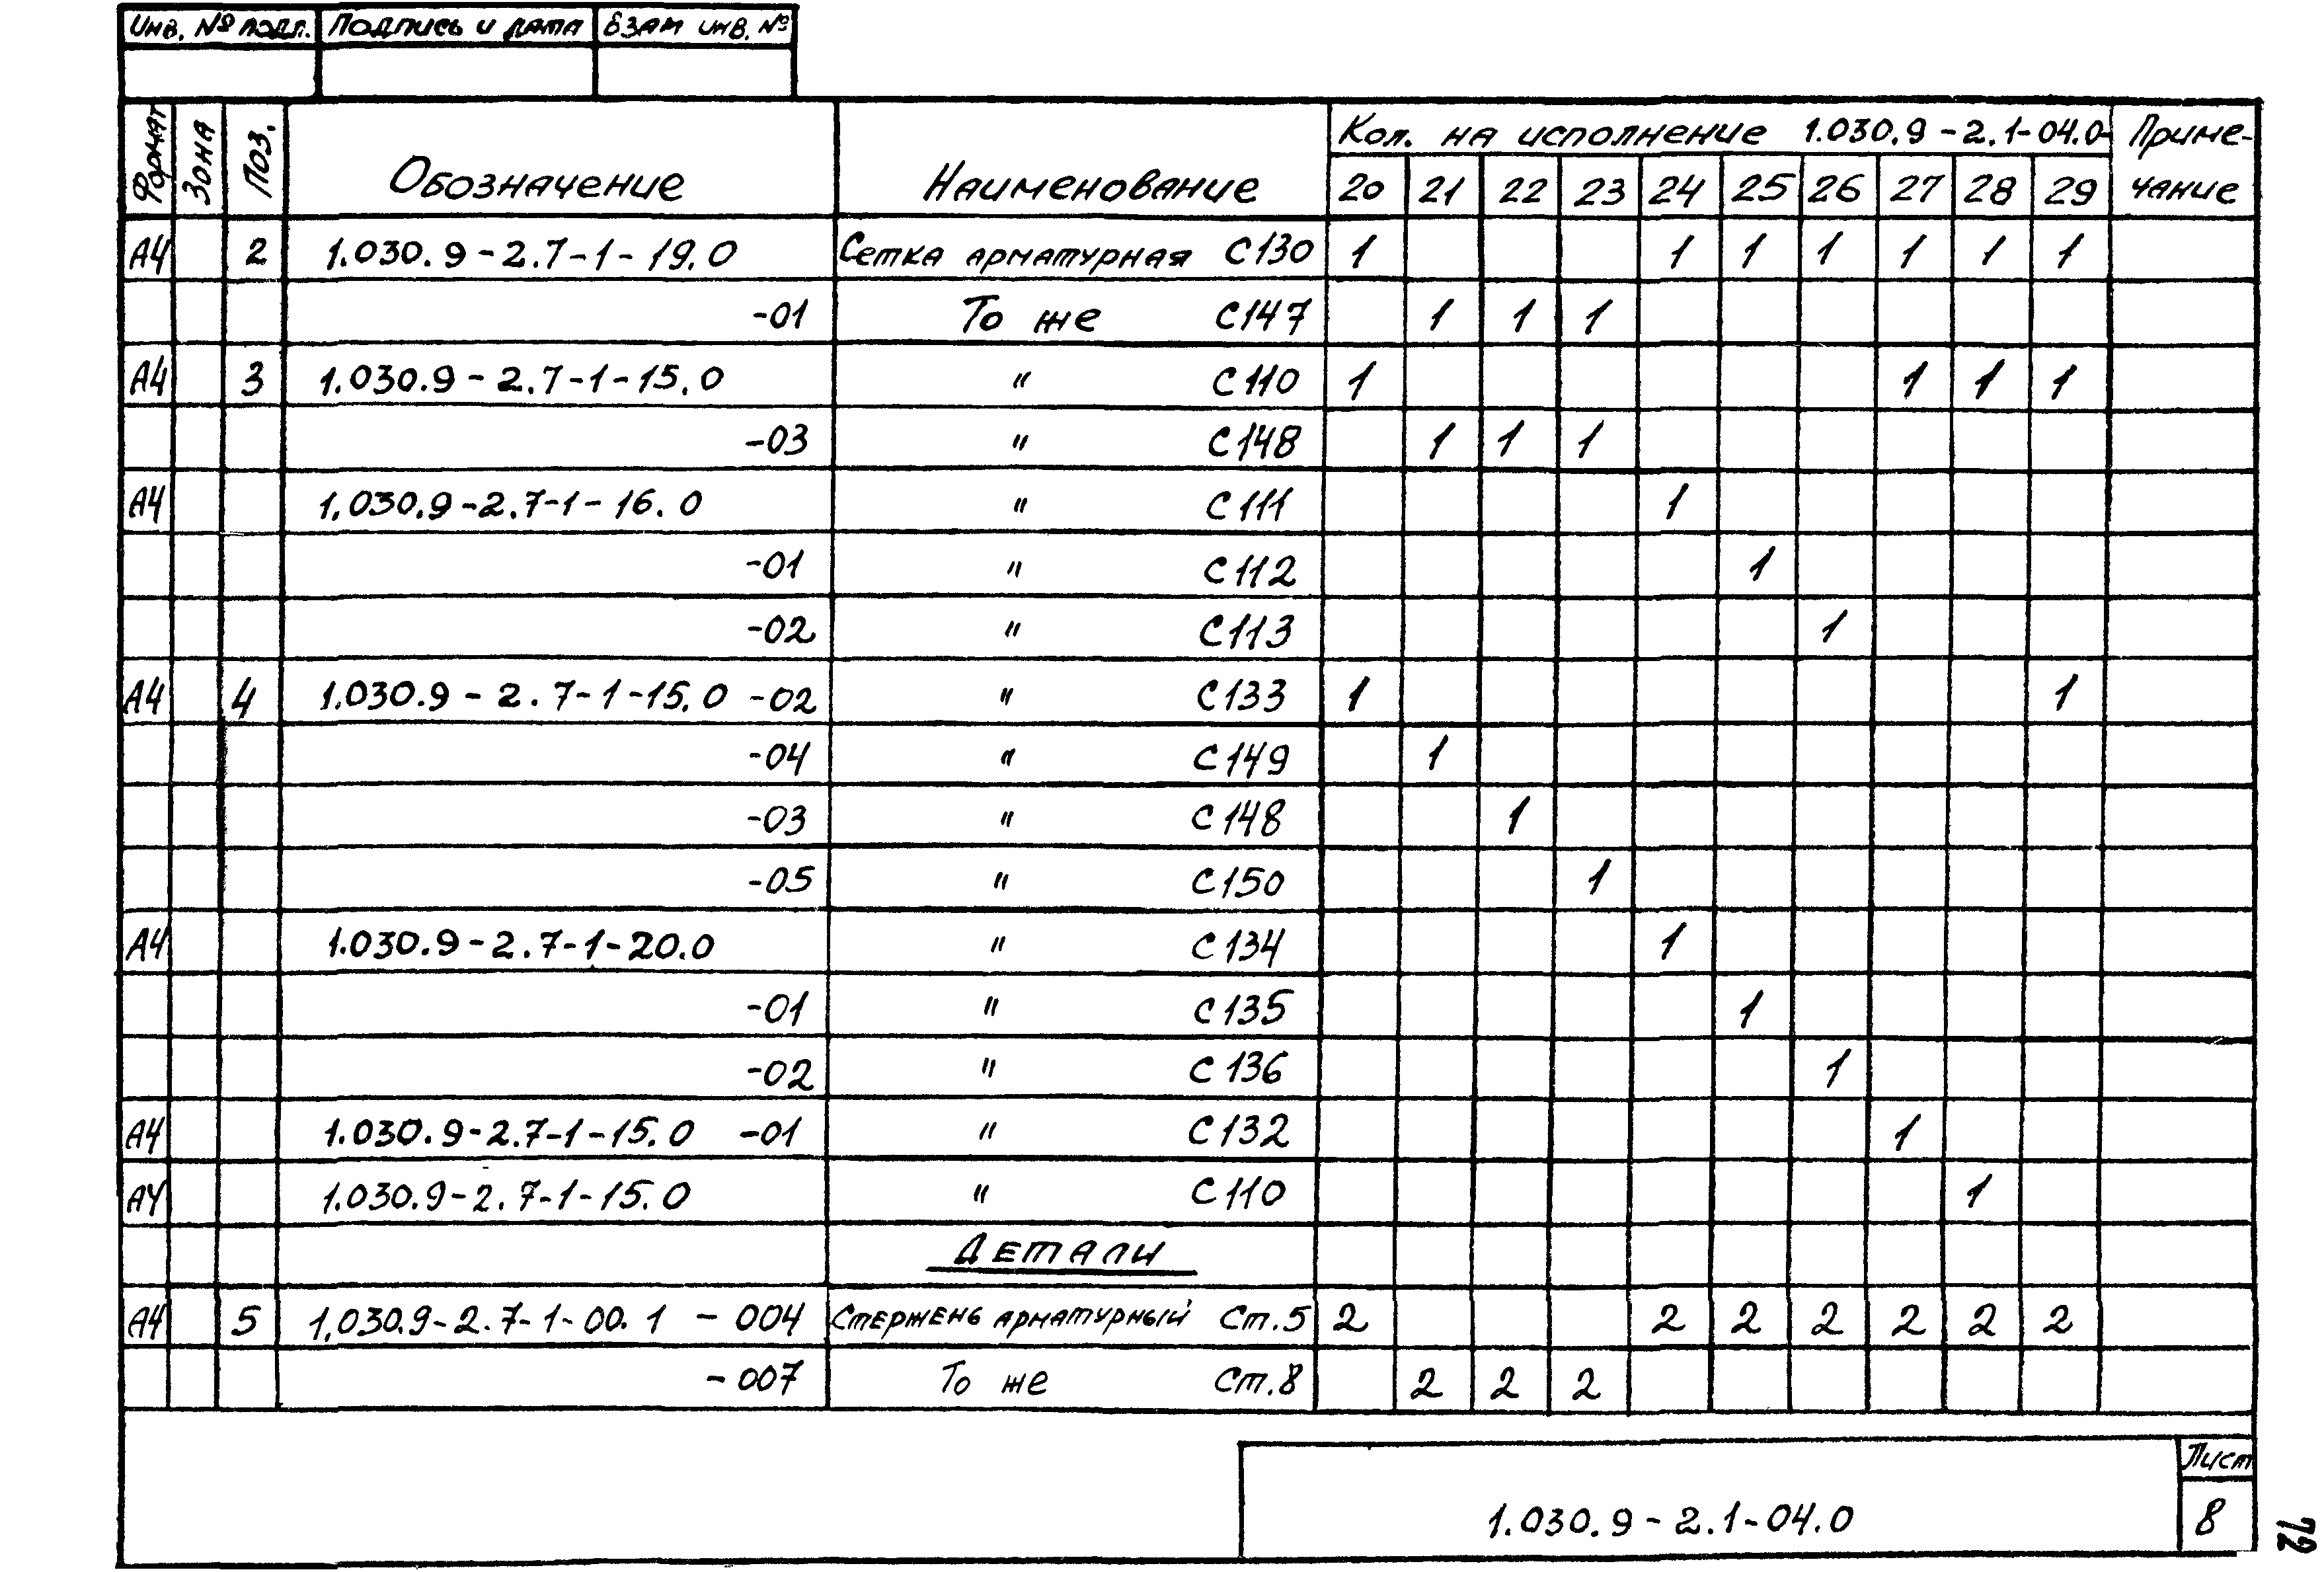 Инв. № подл. Подпись и дата Взам инв. №
Формат Зона Поз. Обозначение Наименование Кол. на исполнение 1.030.9-2.1-04.0- Приме-
20 21 22 23 24 25 26 27 28 29 чание
А4 2 1.030.9-2.7-1-19.0 Сетка арматурная С130 1 1 1 1 1 1 1
-01 То же С147 1 1 1
А4 3 1.030.9-2.7-1-15.0 " С110 1 1 1 1
-03 " С148 1 1 1
А4 1.030.9-2.7-1-16.0 " С111 1
-01 " С112 1
-02 " С113 1
А4 4 1.030.9-2.7-1-15.0 -02 " С133 1 1
-04 " С149 1
-03 " С148 1
-05 " С150 1
А4 1.030.9-2.7-1-20.0 " С134 1
-01 " С135 1
-02 " С136 1
А4 1.030.9-2.7-1-15.0 -01 " С132 1
А4 1.030.9-2.7-1-15.0 " С110 1
Детали
А4 5 1.030.9-2.7-1-00.1 -004 Стержень арматурный Ст.5 2 2 2 2 2 2 2
-007 То же Ст.8 2 2 2
Лист
1.030.9-2.1-04.0 8
72